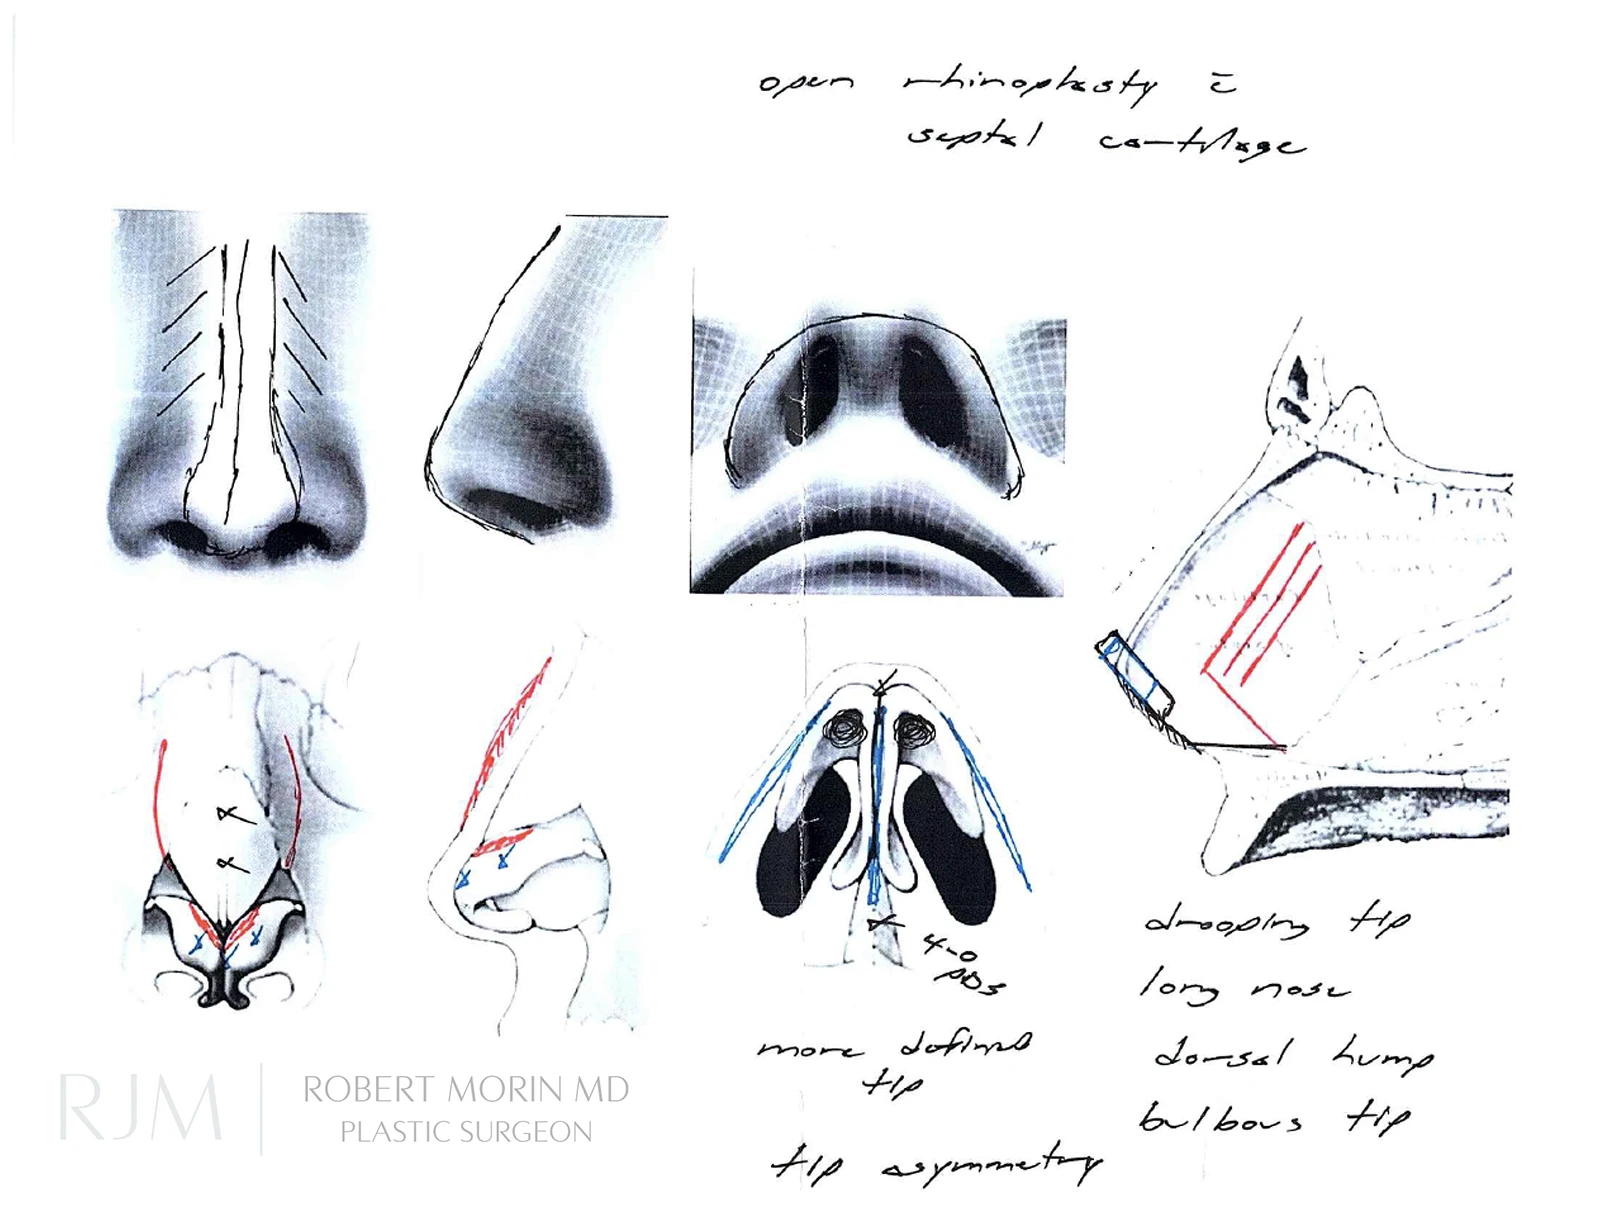 open rhinoplasty c̄
septal cartilage
4-0
PDS
more defined
tip
tip asymmetry
drooping tip
long nose
dorsal hump
bulbous tip
RJM
ROBERT MORIN MD
PLASTIC SURGEON